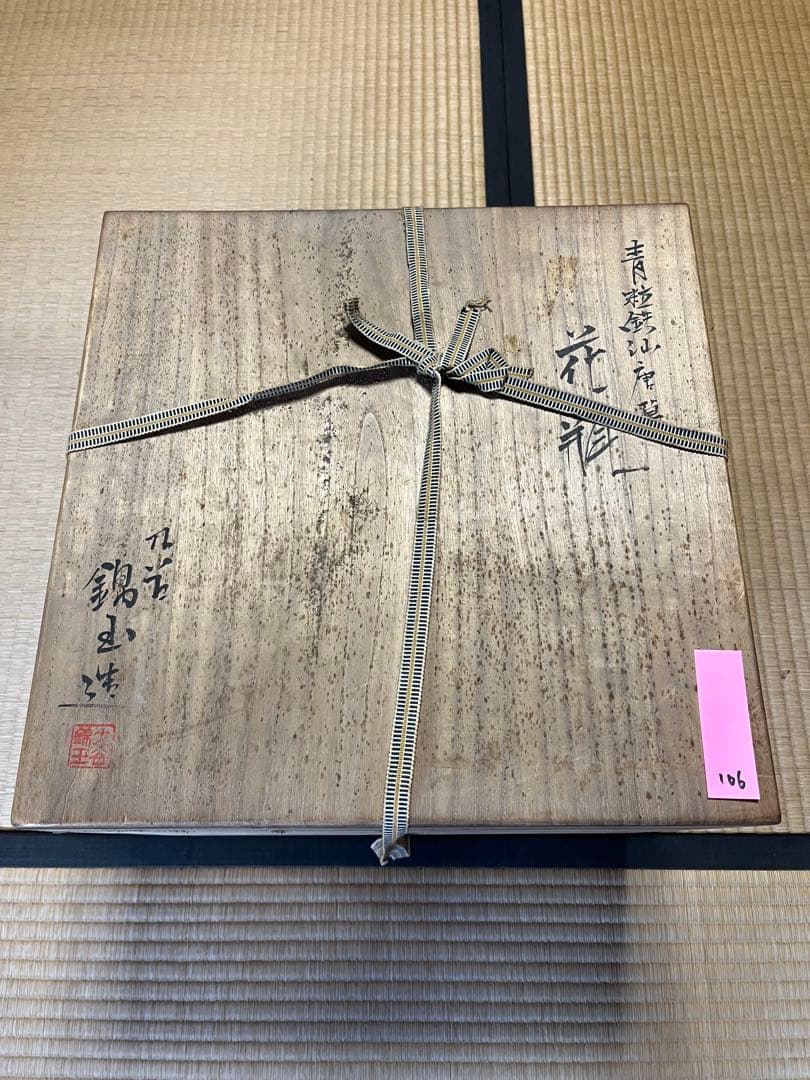 青粒鉄仙唐草
花瓶
九谷
錦玉造
大仝
錦玉
106